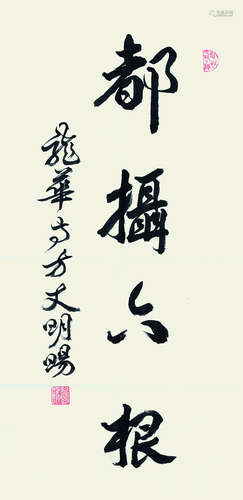 都攝六根
龍華寺方丈明暘